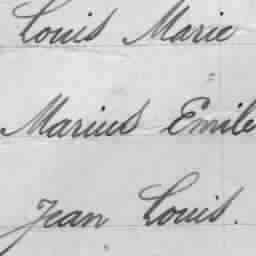 Louis Marie
Marius Emile
Jean Louis.